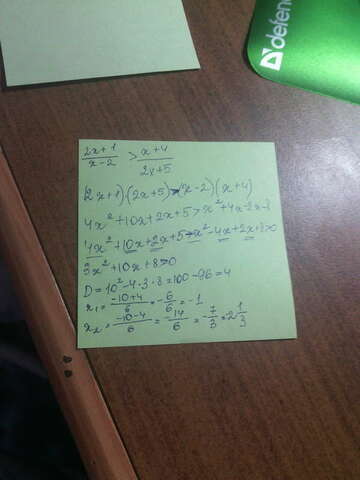 defend
2x+1/x-2 > x+4/2x+5
(2x+1)·(2x+5)>(x-2)(x+4)
4x²+10x+2x+5>x²+4x-2x-8
4x²+10x+2x+5-x²-4x+2x+8>0
3x²+10x+8>0
D=10²-4·3·8=100-96=4
x₁=-10+4/6=-6/6=-1
x₂=-10-4/6=-14/6=-7/3=2 1/3